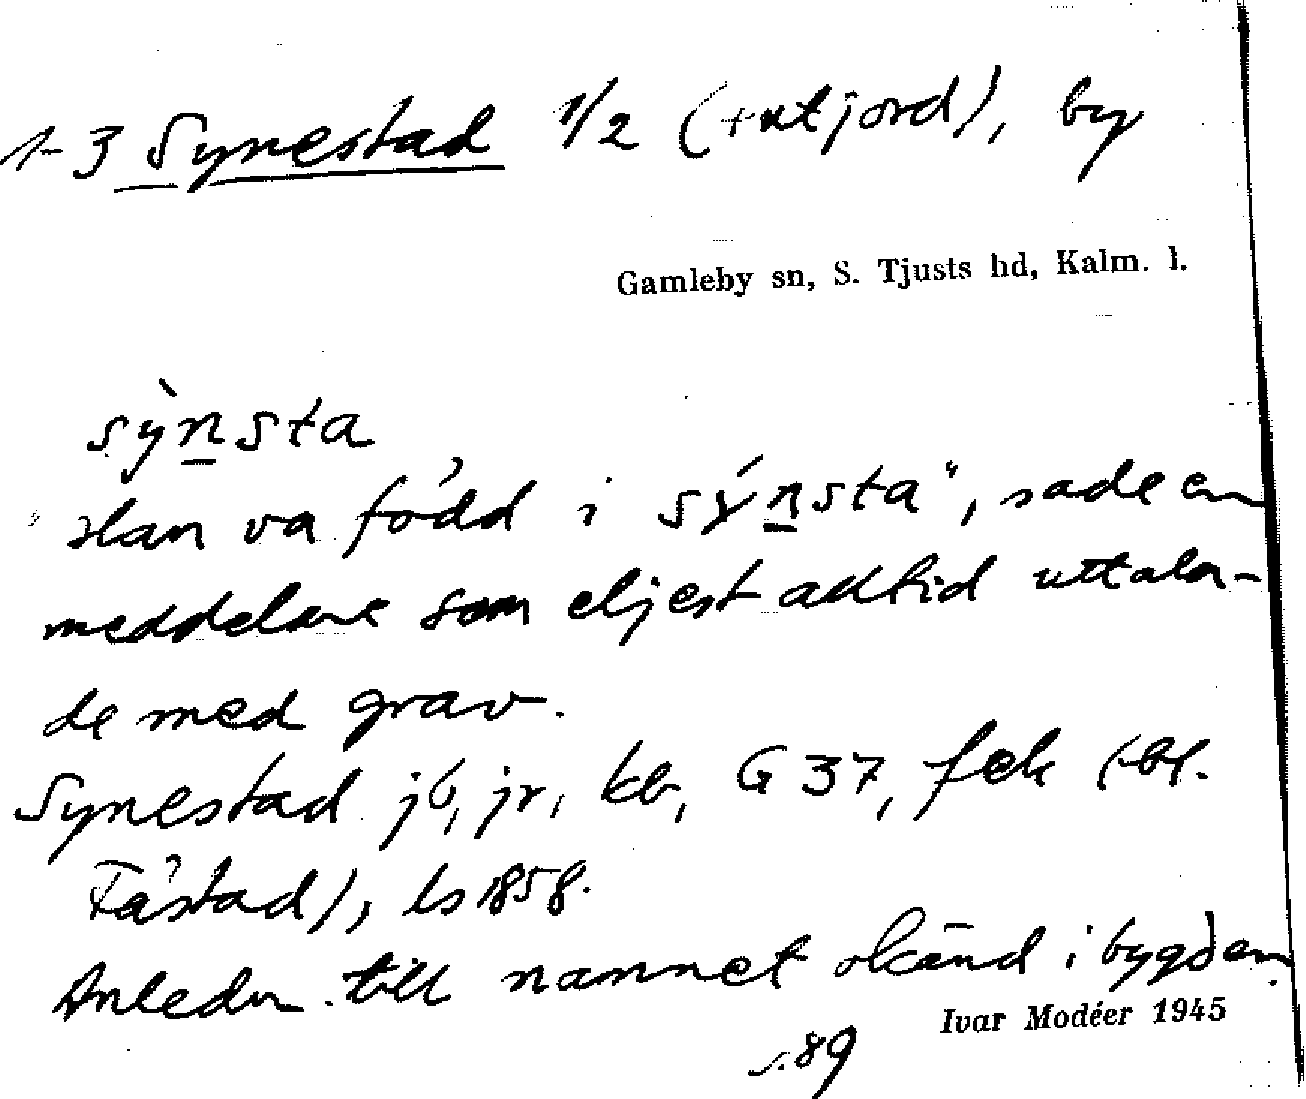 1-3 Synestad 1/2 (+utjord), by
Gamleby sn, S. Tjusts hd, Kalm. l.
sỳnsta
"Han va född i sýnsta", sade en
meddelare som eljest alltid uttala-
de med grav.
Synestad jb, jr, kb, G 37, fek (-bl.
Fåstad), ls 1858.
Anledn. till namnet okänd i bygden.
Ivar Modéer 1945
s. 89